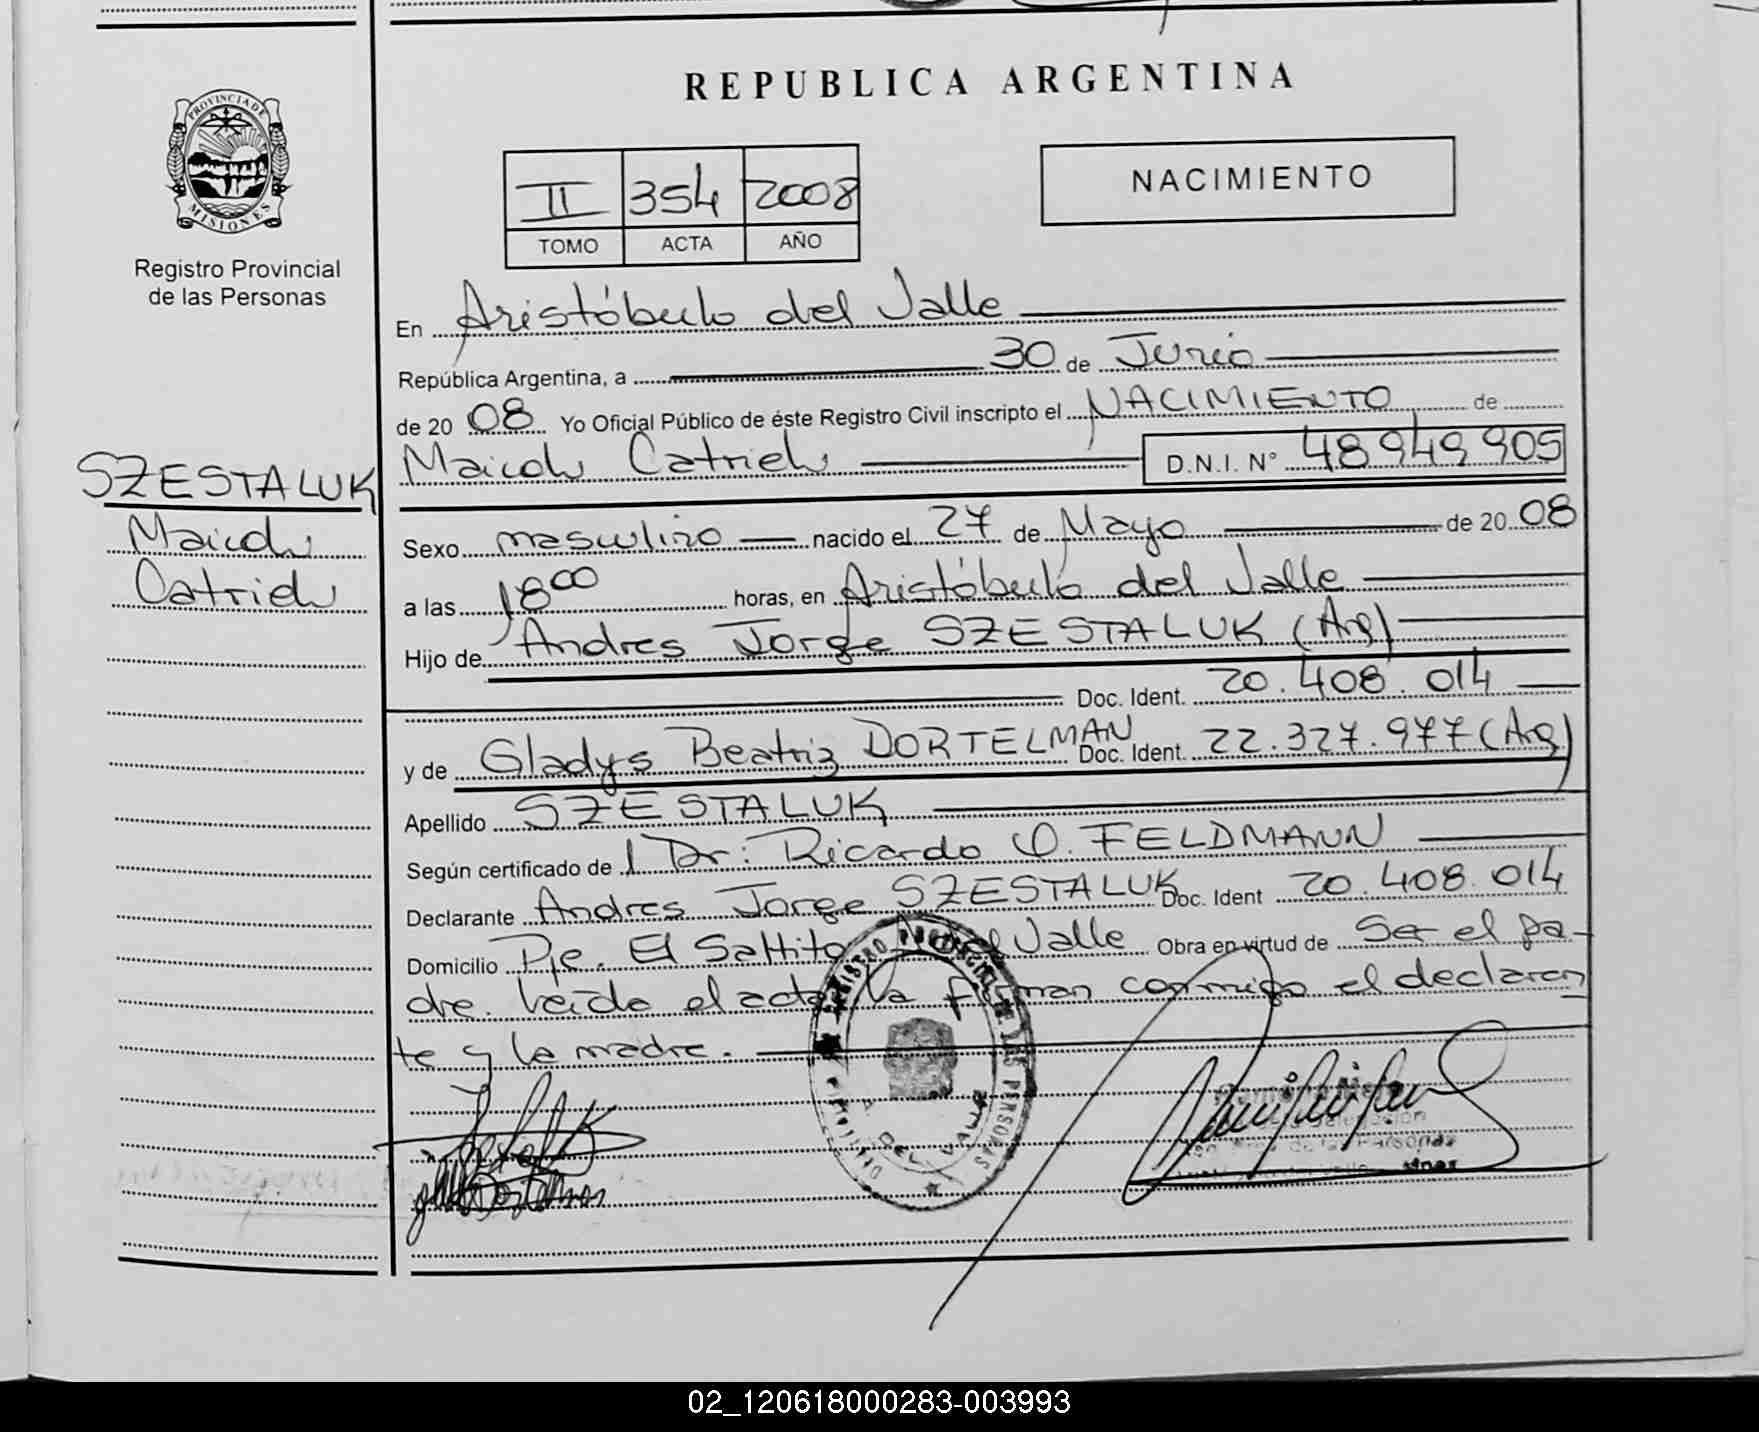 REPUBLICA ARGENTINA
PROVINCIA DE
MISIONES
Registro Provincial
de las Personas
II 354 2008
TOMO ACTA AÑO
NACIMIENTO
En Aristóbulo del Valle
República Argentina, a 30 de Junio
de 20 08 Yo Oficial Público de éste Registro Civil inscripto el NACIMIENTO de
Maicol Catriel D.N.I. N° 48949905
SZESTALUK
Maicol
Catriel
Sexo masculino nacido el 27 de Mayo de 20 08
a las 18 00 horas, en Aristóbulo del Valle
Hijo de Andres Jorge SZESTALUK (Arg)
Doc. Ident. 20.408.014
y de Gladys Beatriz DORTELMAN Doc. Ident. 22.327.977 (Arg)
Apellido SZESTALUK
Según certificado de l Dr: Ricardo O. FELDMANN
Declarante Andres Jorge SZESTALUK Doc. Ident 20.408.014
Domicilio Pje. El Saltito A. del Valle Obra en virtud de Ser el pa-
dre. Leída el acta la firman conmigo el declaran
te y la madre.
REGISTRO PROVINCIAL DE LAS PERSONAS
A. DEL VALLE
de las Personas
02_120618000283-003993